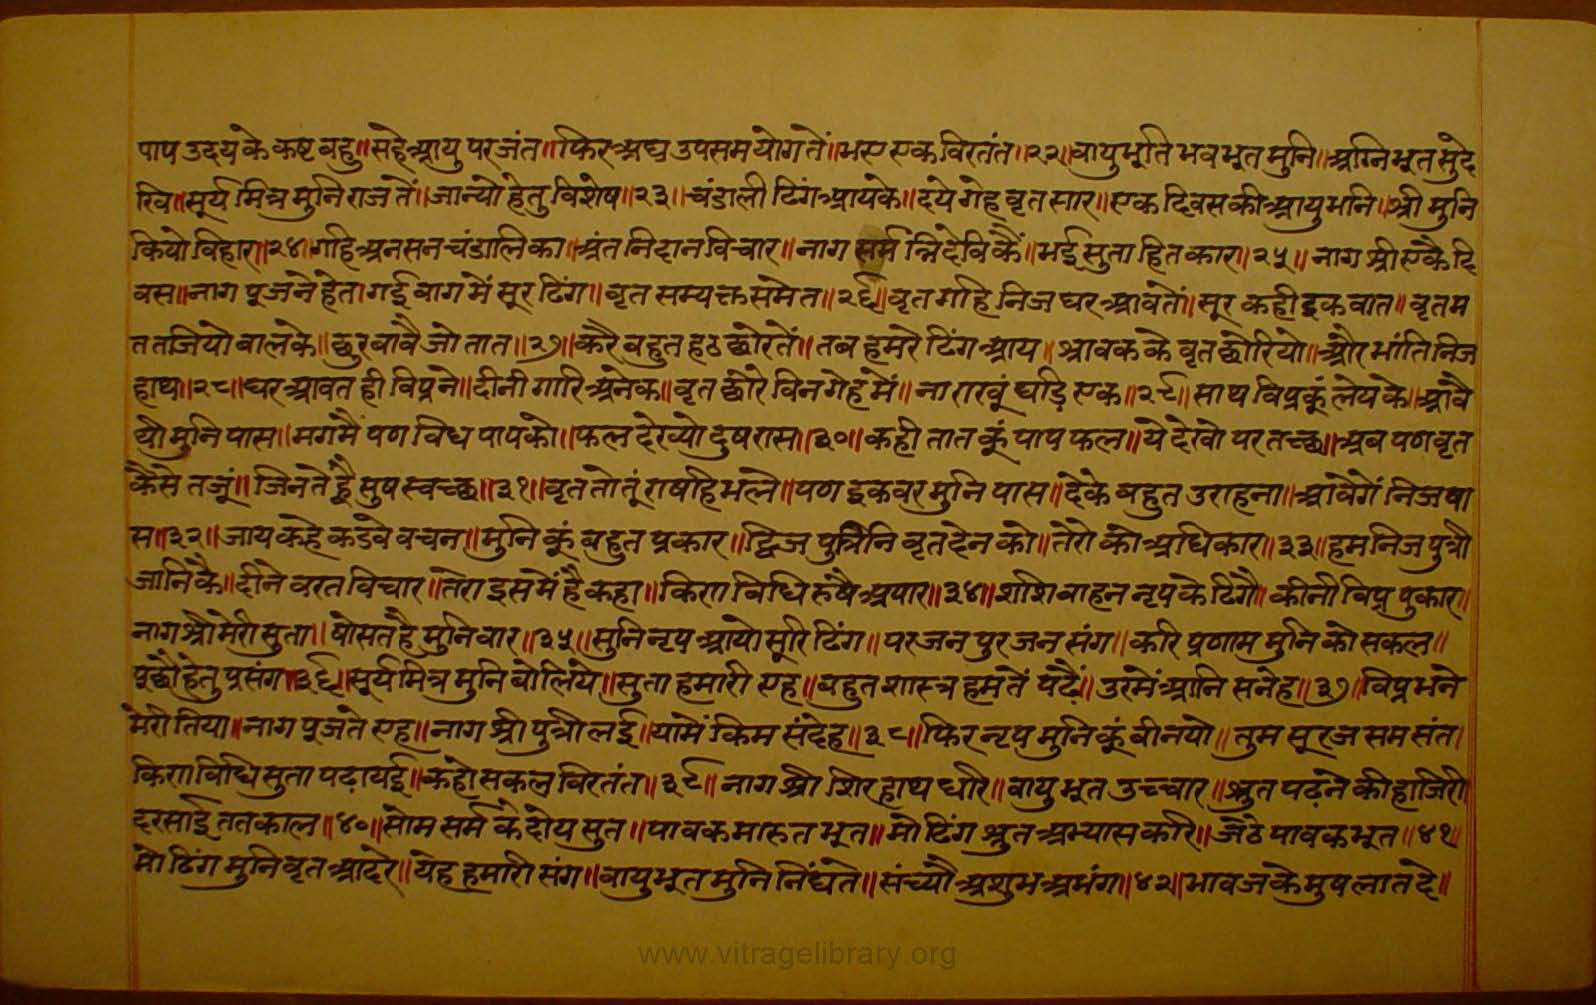 पाप उदय के कष्ट बहु॥ सहे आयु परजंत॥ फिर अघ उपसम योग तें॥ भए एक विरतंत॥२२॥ वायुभूति भव भूत मुनि॥ अग्निभूत मुंदे
खि॥ सूर्य मित्र मुनिराज तें॥ जान्यो हेतु विशेष॥२३॥ चंडाली ढिंग आयके॥ दये गेह वृत सार॥ एक दिवस की आयु भनि॥ श्री मुनि
कियो विहार॥२४॥ गहि अनसन चंडालिका॥ अंत निदान विचार॥ नाग सर्म त्रिदेवि कैं॥ भई सुता हितकार॥२५॥ नाग श्री एकै दि
वस॥ नाग पूजने हेत॥ गई बाग में सूर ढिंग॥ वृत सम्यक्त समेत॥२६॥ वृत गहि निज घर आवतें॥ सूर कही इक बात॥ वृत म
त तजियो बालके॥ छुरवावै जो तात॥२७॥ करै बहुत हठ छोरतें॥ तब हमरे ढिंग आय॥ श्रावक के वृत छोरियो॥ और भांति निज
हाथ॥२८॥ घर आवत ही विप्र ने॥ दीनी गारि अनेक॥ वृत छोरे विन गेह में॥ ना राखूं घड़ि एक॥२९॥ साथ विप्र कूं लेय के॥ आवै
थी मुनि पास॥ मग मैं पण विध पाप को॥ फल देख्यो दुष रास॥३०॥ कही तात कूं पाप फल॥ ये देखो परतच्छ॥ अब पण वृत
कैसे तजूं॥ जिन तें ह्वै सुष स्वच्छ॥३१॥ वृत तो तूं राषहि भले॥ पण इक वर मुनि पास॥ देके बहुत उराहना॥ आवेगें निज वा
स॥३२॥ जाय कहे कडवे वचन॥ मुनि कूं बहुत प्रकार॥ द्विज पुत्रिनि वृत देन को॥ तेरो को अधिकार॥३३॥ हम निज पुत्री
जानि कै॥ दीने वरत विचार॥ तेरा इस में है कहा॥ किण विधि रुषै अपार॥३४॥ शशि वाहन नृप के ढिगै॥ कीनी विप्र पुकार॥
नाग श्री मेरी सुता॥ षोसत है मुनि वार॥३५॥ सुनि नृप आयो सूरि ढिंग॥ परजन पुरजन संग॥ करि प्रणाम मुनि को सकल॥
पूछौ हेतु प्रसंग॥३६॥ सूर्य मित्र मुनि बोलिये॥ सुता हमारी एह॥ बहुत शास्त्र हम तें पढैं॥ उर में आनि सनेह॥३७॥ विप्र भने
मेरी तिया॥ नाग पूजते एह॥ नाग श्री पुत्री लई॥ या में किम संदेह॥३८॥ फिर नृप मुनि कूं वीनयो॥ तुम सूरज सम संत।
किण विधि सुता पढ़ायई॥ कहो सकल विरतंत॥३९॥ नाग श्री शिर हाथ धरि॥ वायुभूत उच्चार॥ श्रुत पढ़ने की हाजिरी
दरसाई ततकाल॥४०॥ सोम सर्म के दोय सुत॥ पावक मारुत भूत॥ मो ढिंग श्रुत अभ्यास करि॥ जेठे पावक भूत॥४१॥
मो ढिंग मुनि वृत आदरे॥ येह हमारी संग॥ वायुभूत मुनि निंद्यते॥ संच्यौ अशुभ अभंग॥४२॥ भावज के मुष लात दे॥
www.vitragelibrary.org